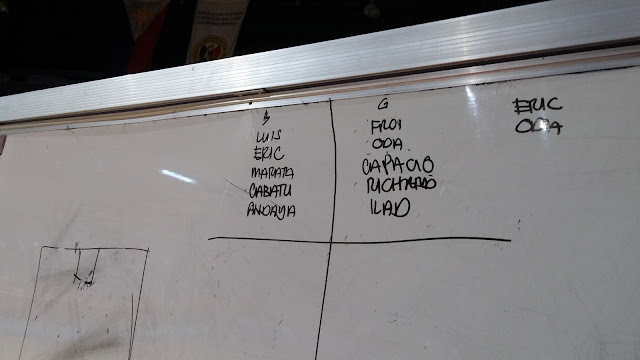 B
LUIS
ERIC
MARATA
CABATU
ANDAYA
G
FROI
ODA
CAPACIO
RICHARD
ILAD
ERIC
ODA